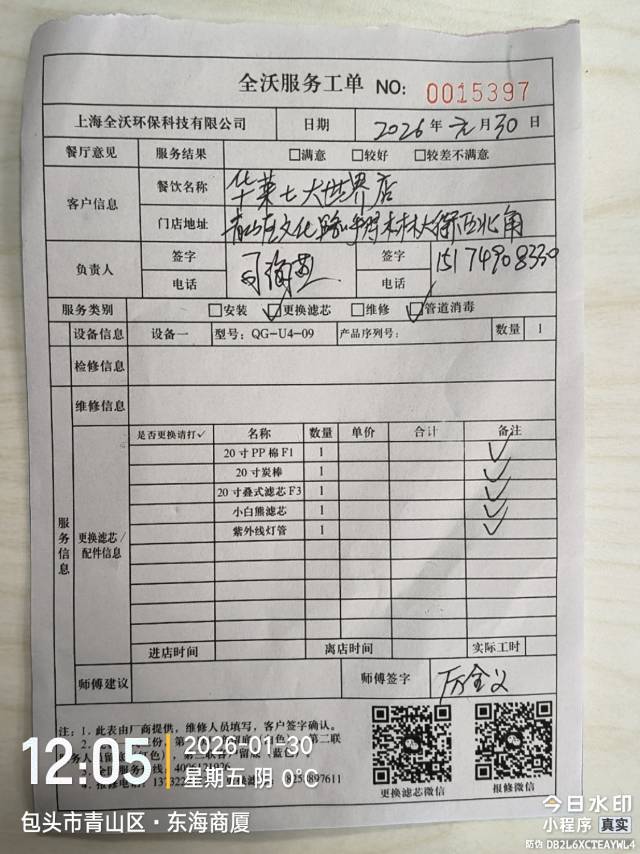 全沃服务工单 NO: 0015397
上海全沃环保科技有限公司 日期 2026年元月30日
餐厅意见 服务结果 □满意 □较好 □较差不满意
客户信息 餐饮名称 华莱士大世界店
门店地址 青山区文化路 大街 北角
负责人 签字 签字 15174908330
电话 电话
服务类别 □安装 ☑更换滤芯 □维修 ☑管道消毒
设备信息 设备一 型号：QG-U4-09 产品序列号： 数量 1
检修信息
维修信息
服务信息
更换滤芯/配件信息
是否更换请打✓ 名称 数量 单价 合计 备注
20寸PP棉F1 1 ✓
20寸炭棒 1 ✓
20寸叠式滤芯F3 1 ✓
小白熊滤芯 1 ✓
紫外线灯管 1 ✓
进店时间 离店时间 实际工时
师傅建议 师傅签字
注：1，此表由厂商提供，维修人员填写，客户签字确认。
更换滤芯微信 报修微信
12:05 2026-01-30
星期五 阴 0°C
包头市青山区·东海商厦
今日水印
小程序 真实
防伪 DB2L6XCTEAYWL4